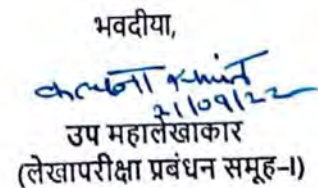 भवदीया,
कल्पना
21/09/22
उप महालेखाकार
(लेखापरीक्षा प्रबंधन समूह-I)